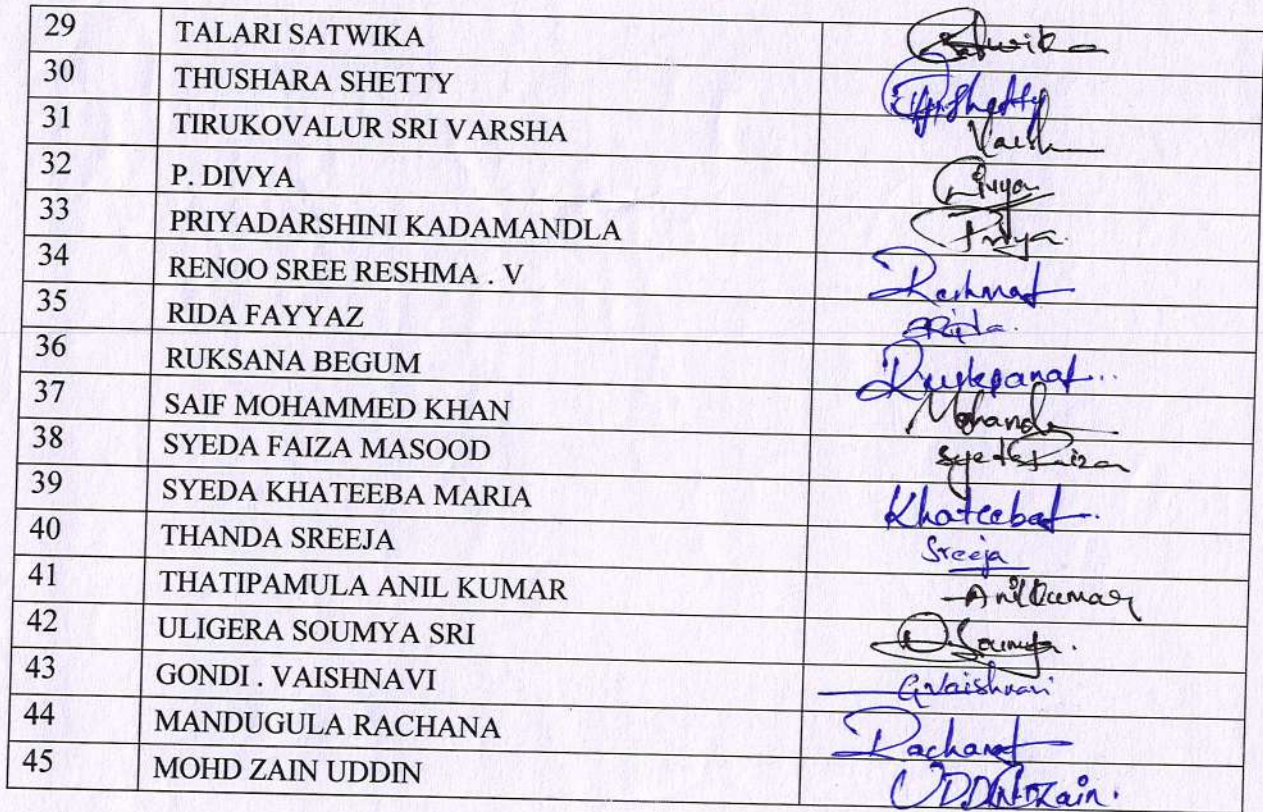 29 TALARI SATWIKA
30 THUSHARA SHETTY
31 TIRUKOVALUR SRI VARSHA
32 P. DIVYA
33 PRIYADARSHINI KADAMANDLA Priya
34 RENOO SREE RESHMA . V
35 RIDA FAYYAZ Rida
36 RUKSANA BEGUM
37 SAIF MOHAMMED KHAN
38 SYEDA FAIZA MASOOD
39 SYEDA KHATEEBA MARIA
40 THANDA SREEJA Sreeja
41 THATIPAMULA ANIL KUMAR Anilkumar
42 ULIGERA SOUMYA SRI Soumya.
43 GONDI . VAISHNAVI G.Vaishnavi
44 MANDUGULA RACHANA
45 MOHD ZAIN UDDIN